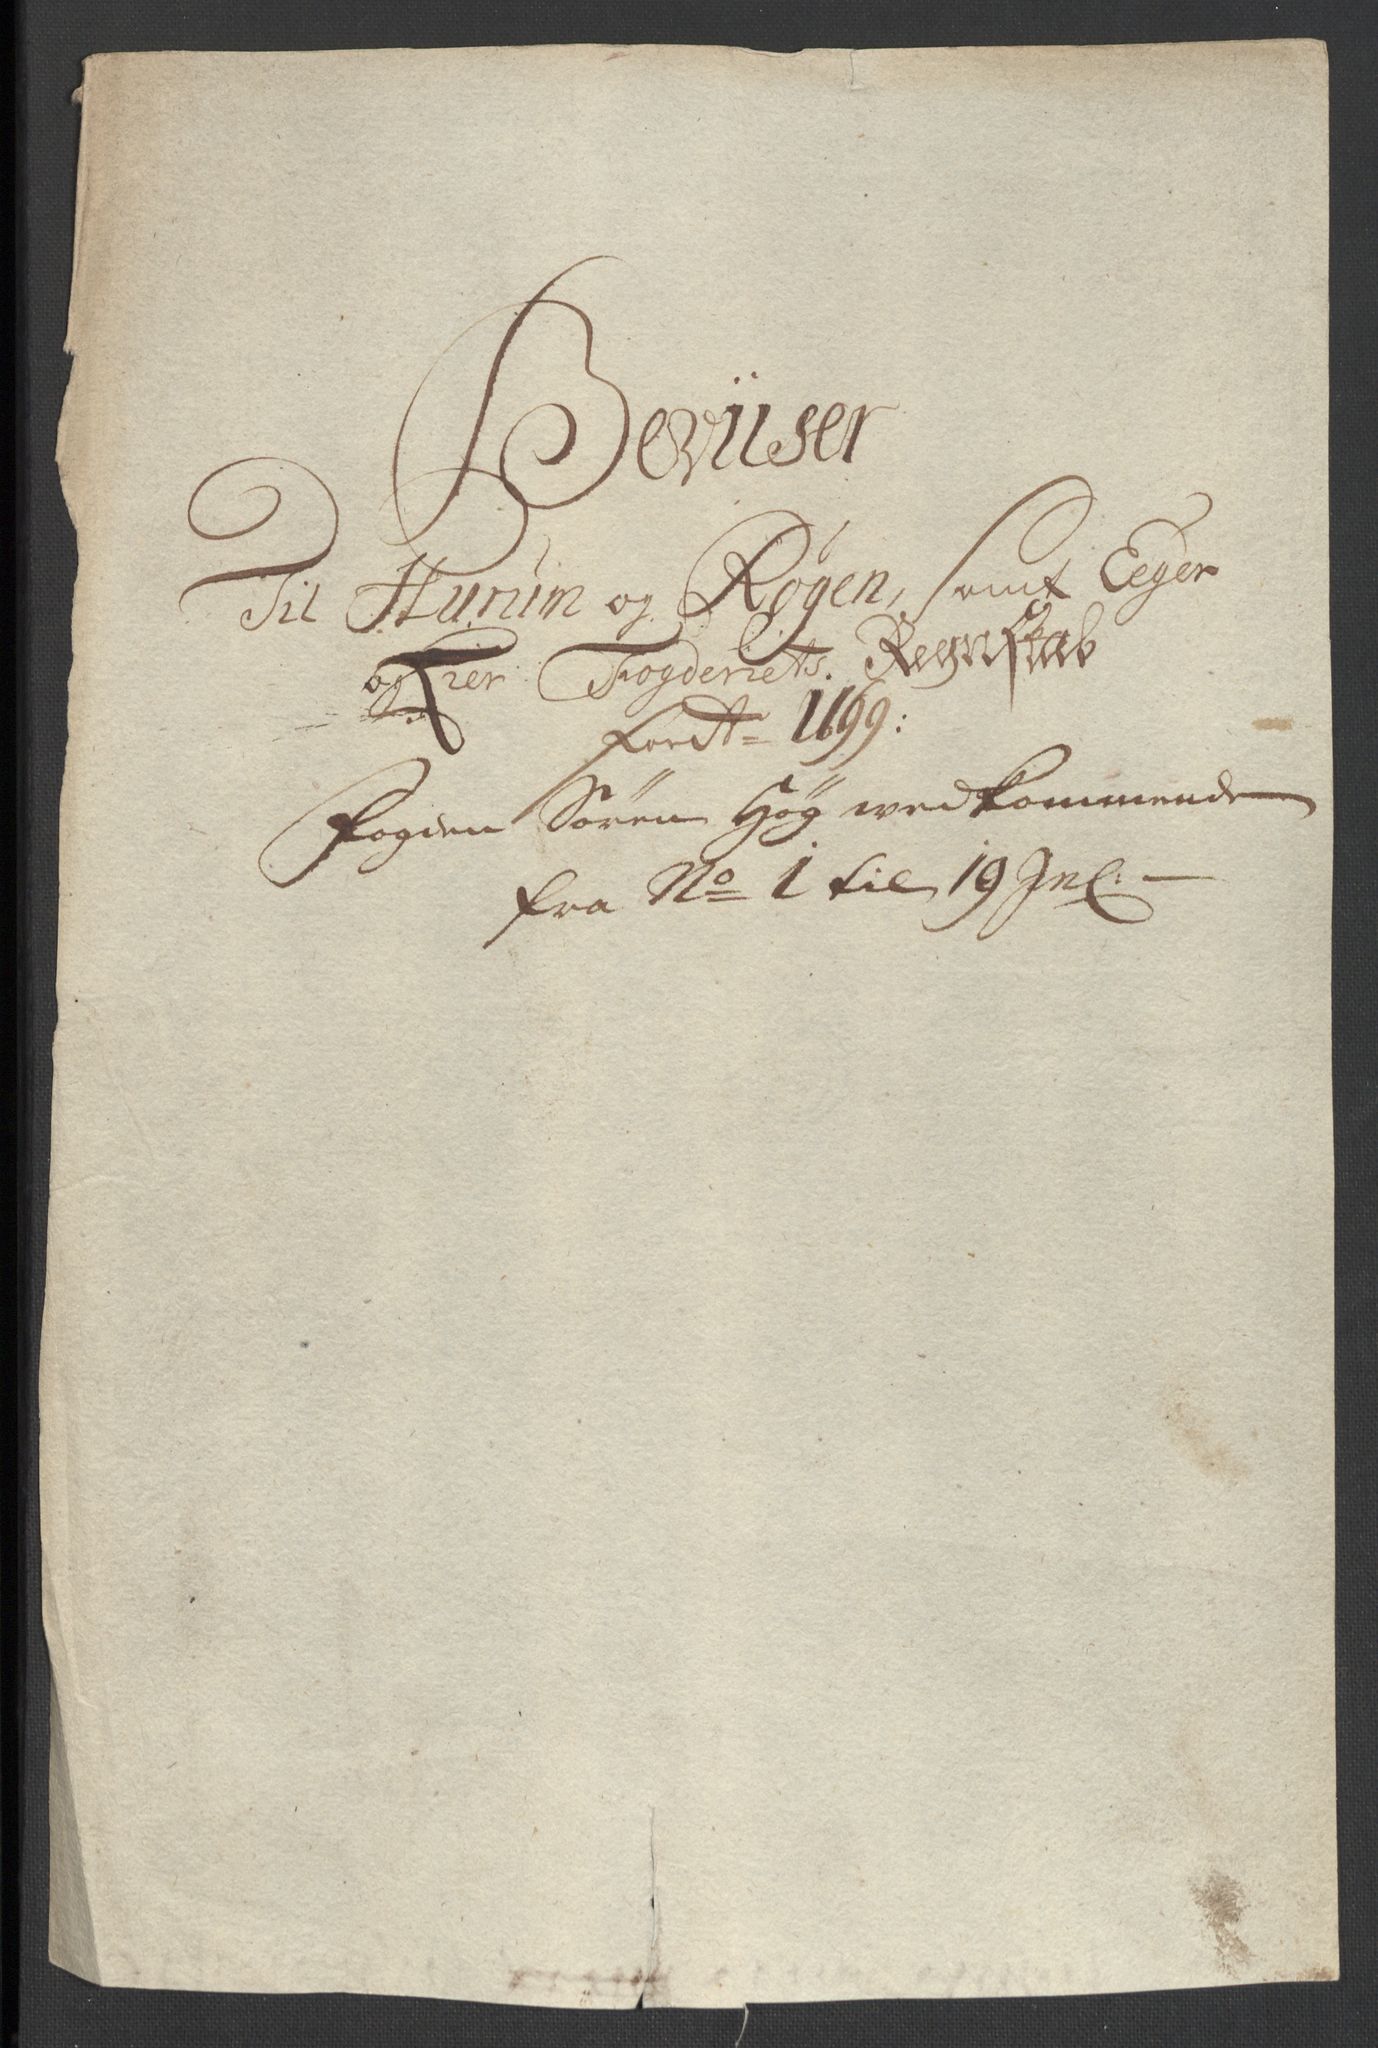 Beviiser
Til Hurum og Røgen, samt Eeger
og Lier Fogderiets Regnskab
for A° 1699:
Fogden Sören Høÿg wedkommende
fra No 1 til 19 Incl: —